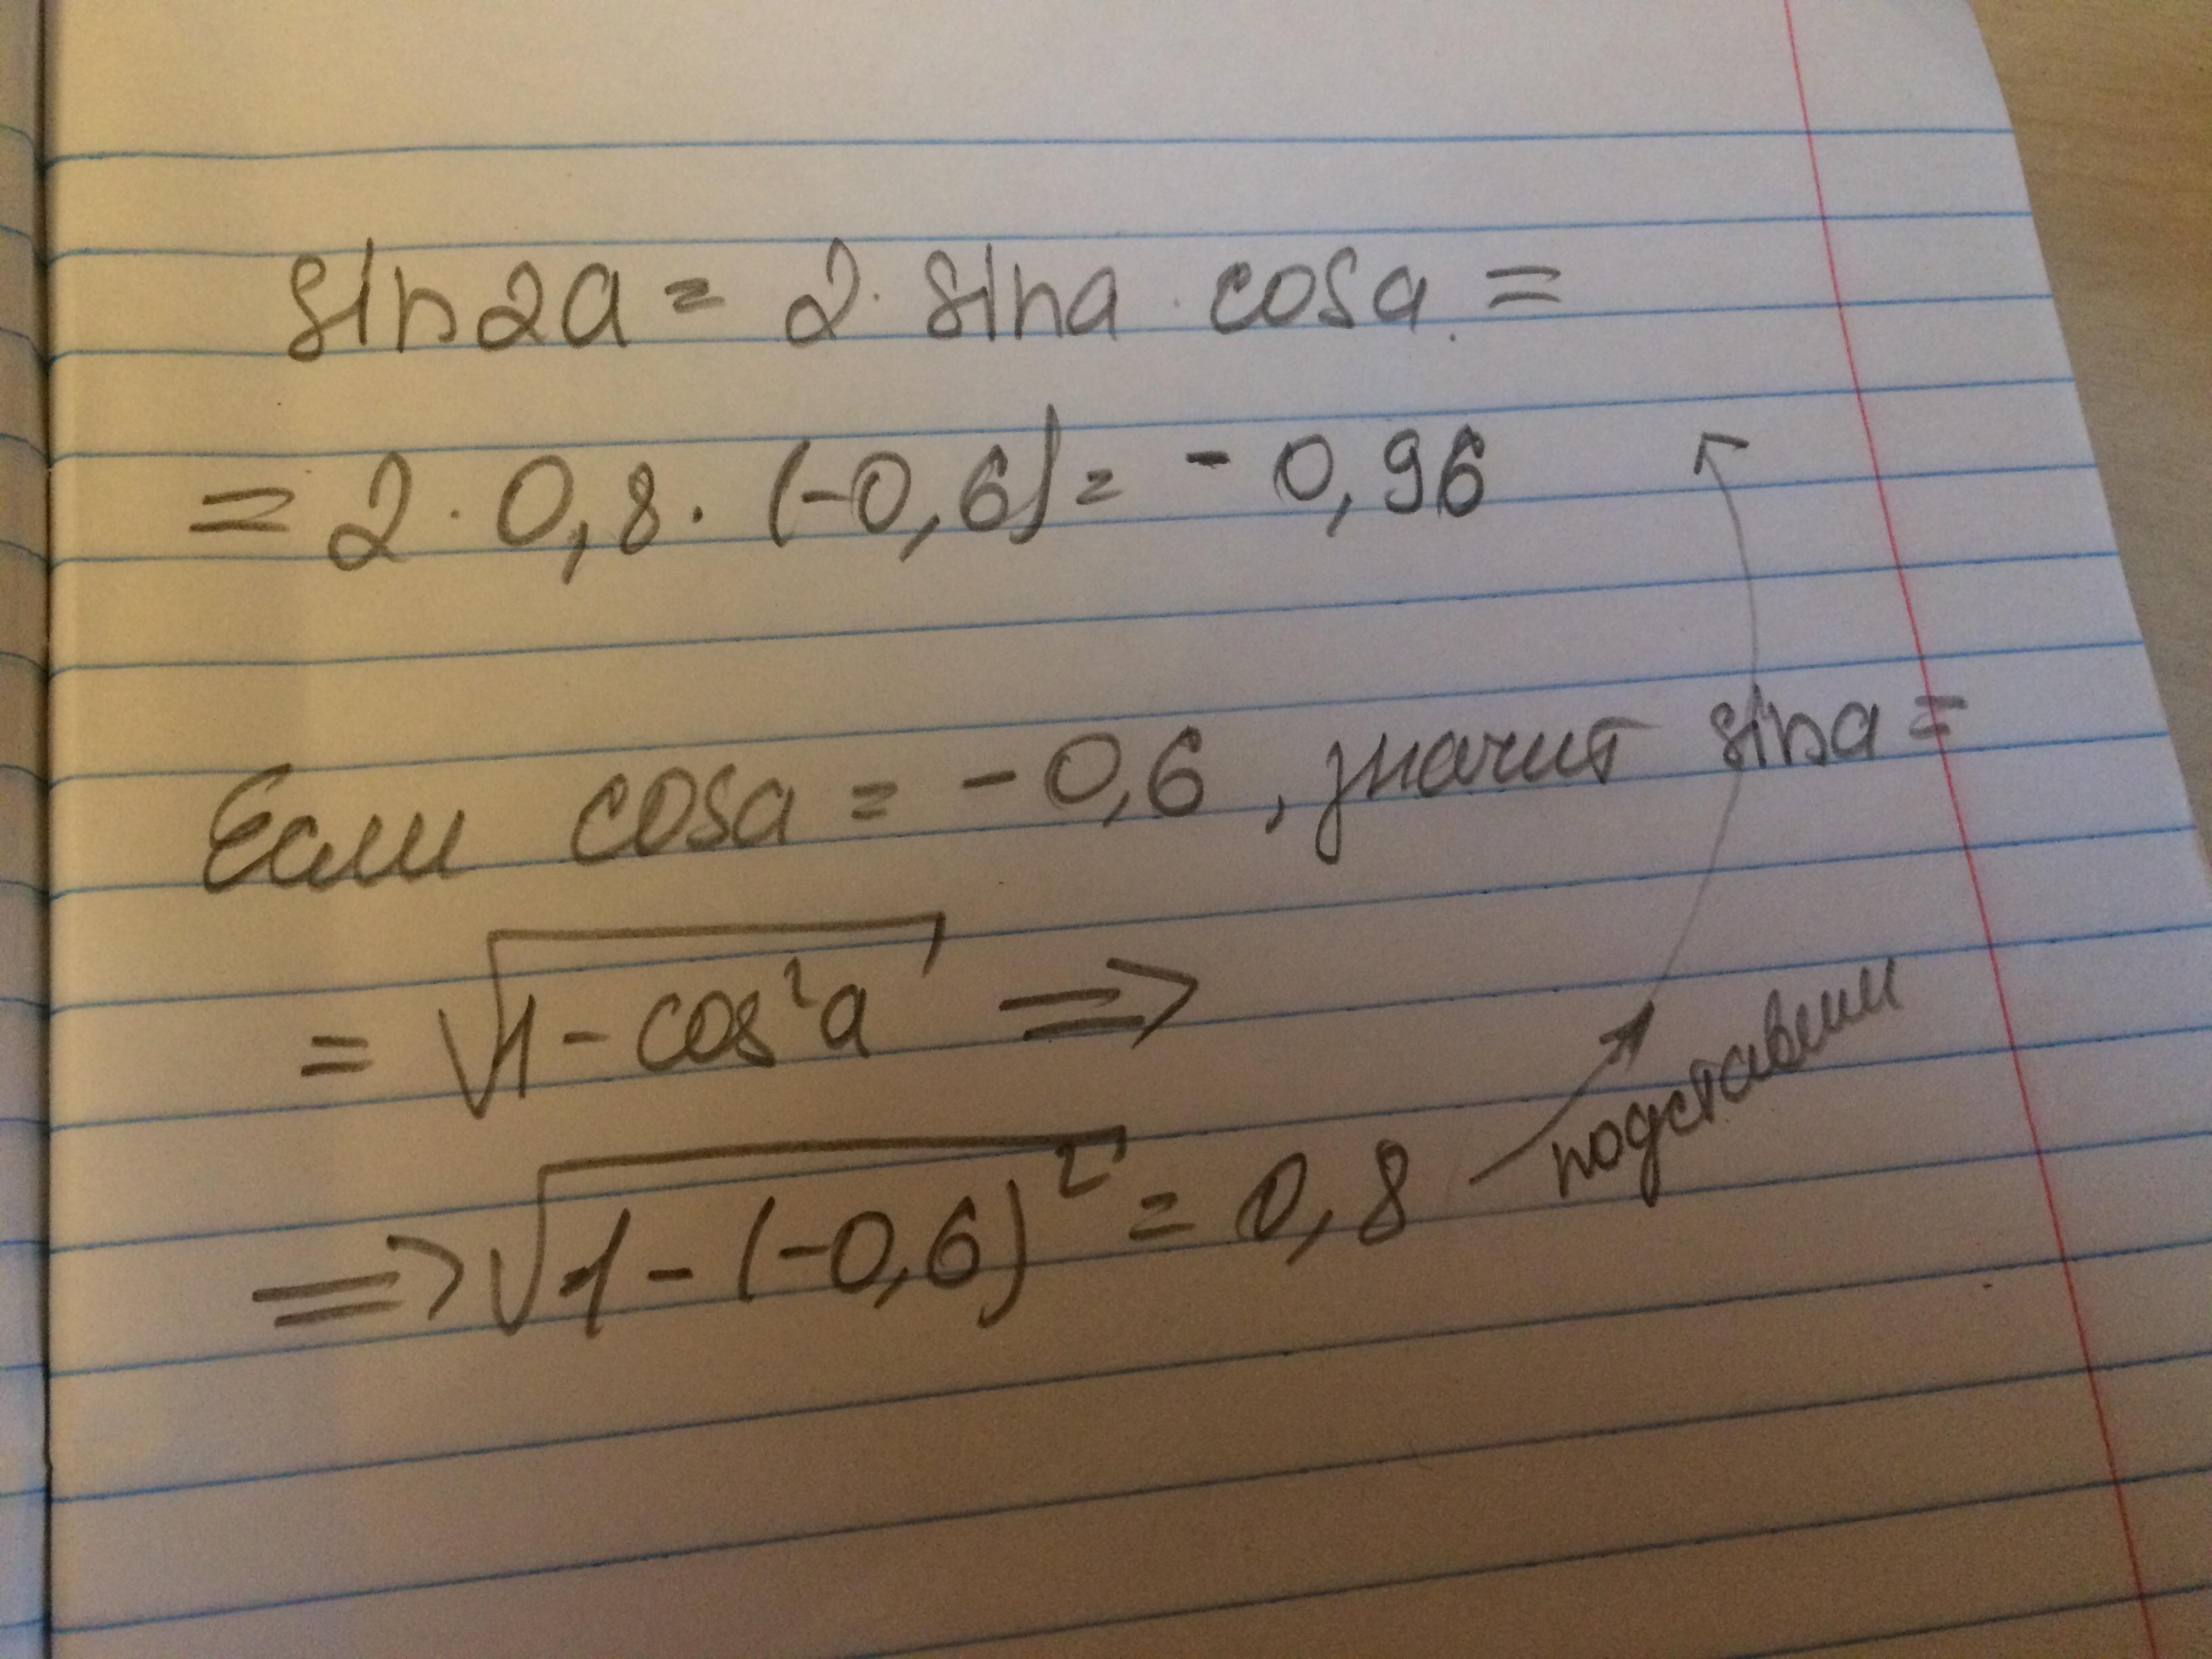 sin2a = 2 · sina · cosa =
= 2 · 0,8 · (-0,6) = - 0,96
Если cosa = - 0,6 , значит sina =
= √1 - cos²a =>
=> √1 - (-0,6)² = 0,8
подставим